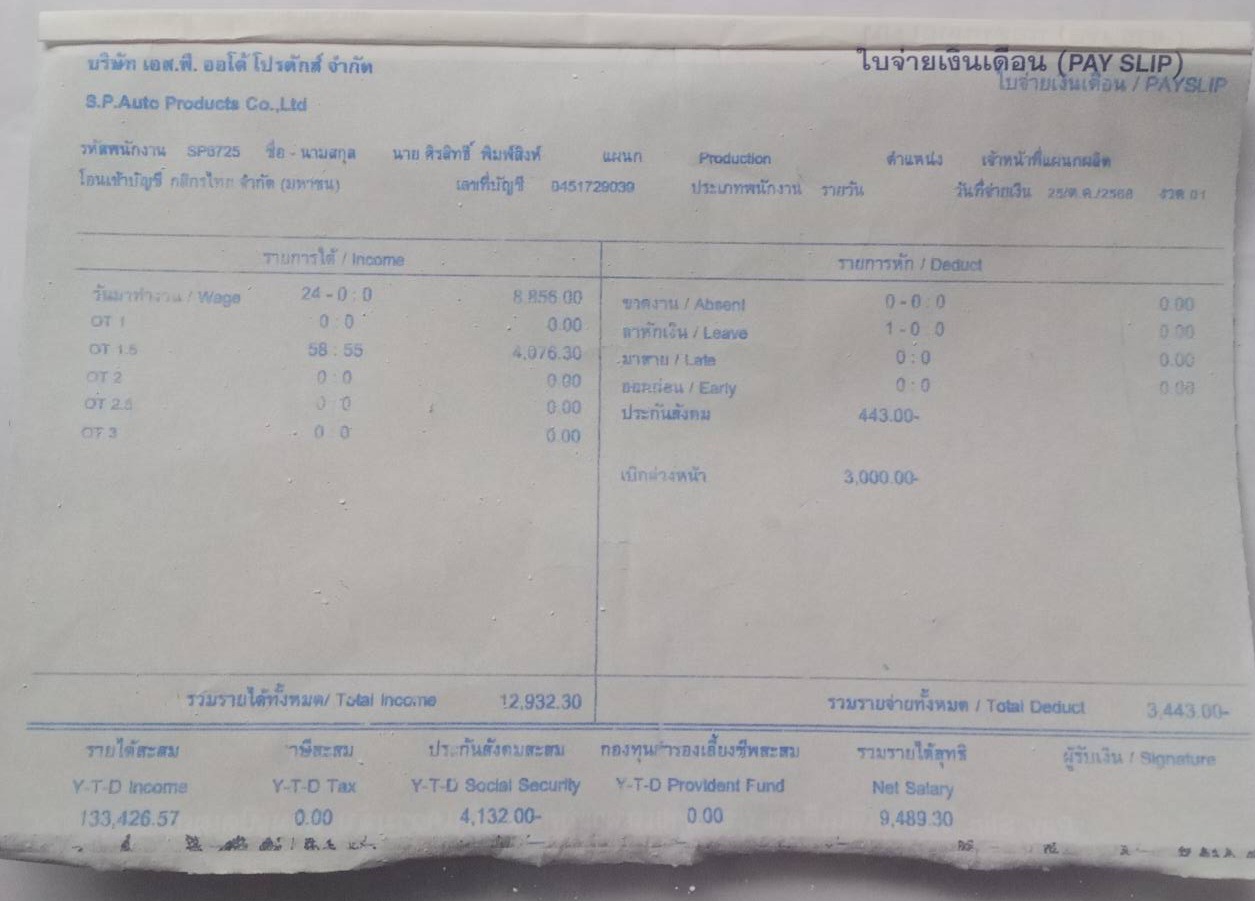 ใบจ่ายเงินเดือน (PAY SLIP)
บริษัท เอส.พี. ออโต้ โปรดักส์ จำกัด
ใบจ่ายเงินเดือน / PAYSLIP
S.P.Auto Products Co.,Ltd
รหัสพนักงาน SP6725 ชื่อ - นามสกุล นาย ศิรสิทธิ์ พิมพ์สิงห์ แผนก Production ตำแหน่ง เจ้าหน้าที่แผนกผลิต
โอนเข้าบัญชี กสิกรไทย จำกัด (มหาชน) เลขที่บัญชี 0451729039 ประเภทพนักงาน รายวัน วันที่จ่ายเงิน 25/ต.ค./2568 งวด 01
รายการได้ / Income รายการหัก / Deduct
วันมาทำงาน / Wage 24 - 0 : 0 8,856.00 ขาดงาน / Absent 0 - 0 : 0 0.00
OT 1 0 : 0 0.00 ลาหักเงิน / Leave 1 - 0 0 0.00
OT 1.5 58 : 55 4,076.30 มาสาย / Late 0 : 0 0.00
OT 2 0 : 0 0.00 ออกก่อน / Early 0 : 0 0.00
OT 2.5 0 : 0 0.00 ประกันสังคม 443.00-
OT 3 0 : 0 0.00
เบิกล่วงหน้า 3,000.00-
รวมรายได้ทั้งหมด/ Total Income 12,932.30 รวมรายจ่ายทั้งหมด / Total Deduct 3,443.00-
รายได้สะสม ภาษีสะสม ประกันสังคมสะสม กองทุนสำรองเลี้ยงชีพสะสม รวมรายได้สุทธิ ผู้รับเงิน / Signature
Y-T-D Income Y-T-D Tax Y-T-D Social Security Y-T-D Provident Fund Net Salary
133,426.57 0.00 4,132.00- 0.00 9,489.30